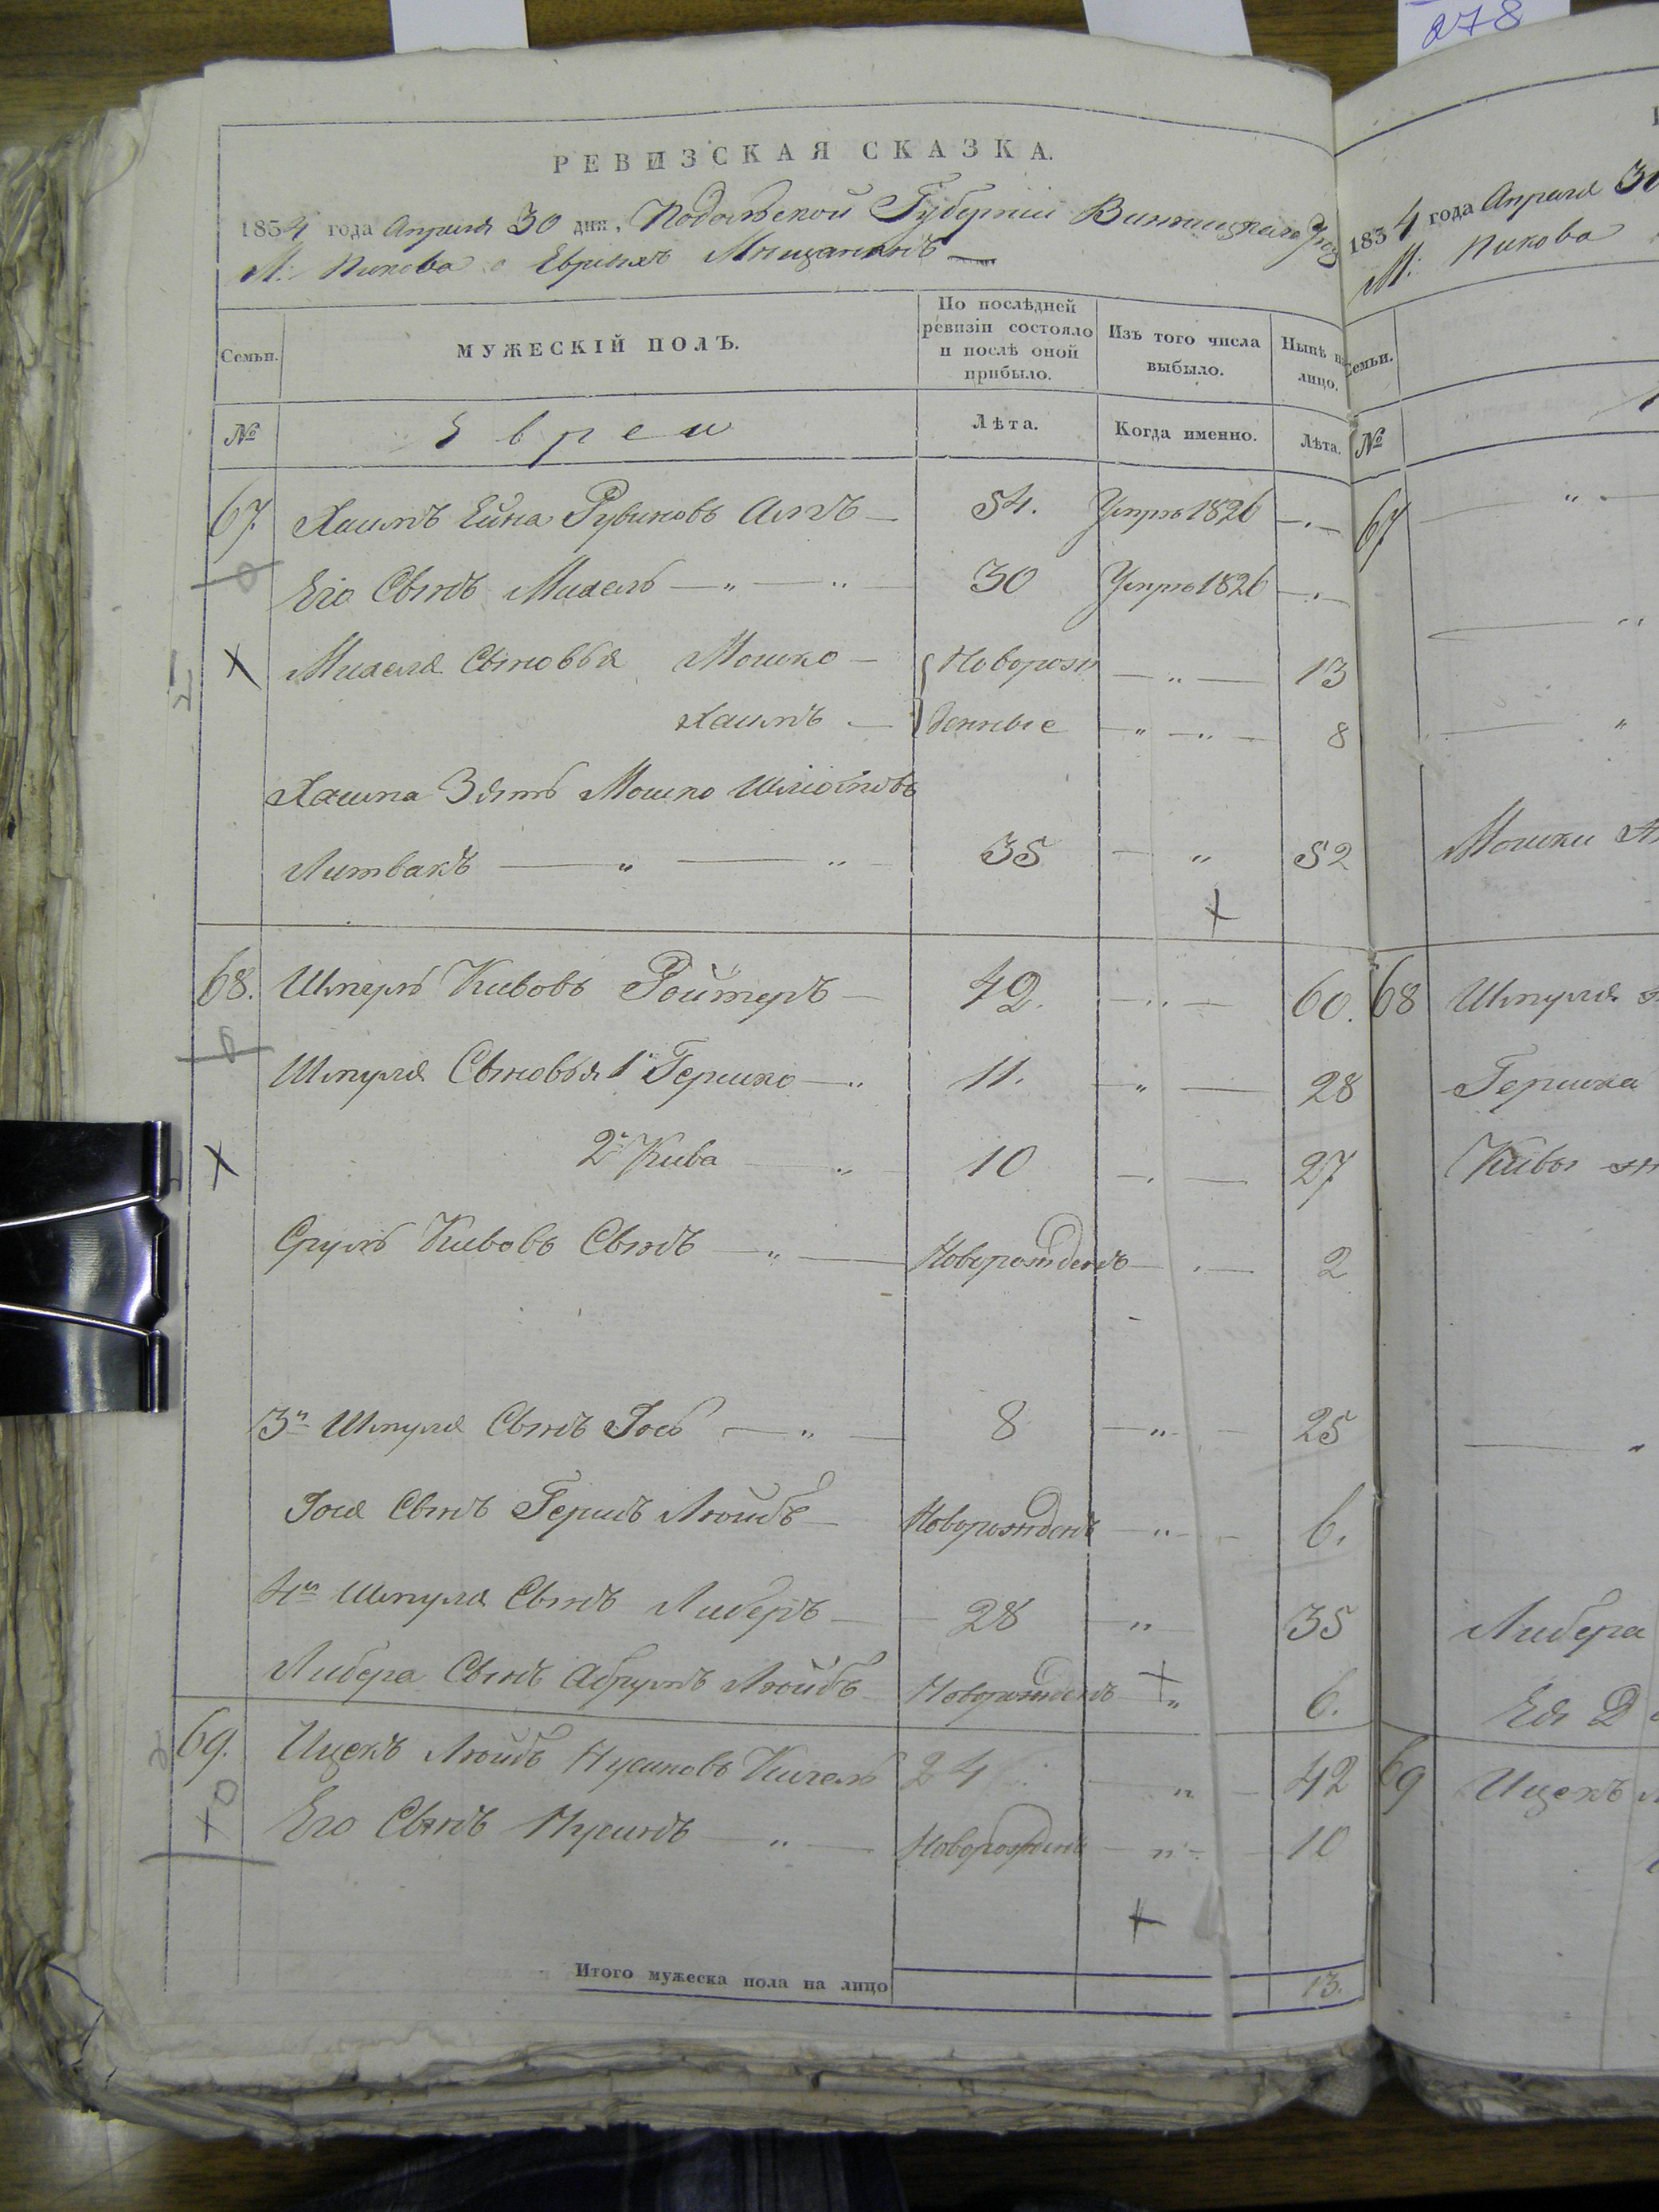 278
РЕВИЗСКАЯ СКАЗКА.
1834 года Апреля 30 дня, Подольской Губернии Винницкаго
М: Пикова о Евреяхъ Мещанахъ
Семьи.
МУЖЕСКІЙ ПОЛЪ.
По послѣдней ревизіи состояло и послѣ оной прибыло.
Изъ того числа выбыло.
Нынѣ на лицо.
№
Евреи
Лѣта.
Когда именно.
Лѣта.
67. Хаимъ Рувиновъ 54. Умре 1826
Его Сынъ Михель 30 Умре 1826
Михеля Сыновья Мошко { Новорож 13
Хаимъ денные 8
Хаима Зять Мошко
Литвакъ 35 52
68. Шмуль Кивовъ Ройтеръ 42. 60.
Шмуля Сыновья 1й Гершко 11. 28
2й Кива 10 27
Сруль Кивовъ Сынъ Новорожденъ 2
3й Шмуля Сынъ Іось 8 25
Іося Сынъ Гершъ Лейбъ Новорожденъ 6.
4й Шмуля Сынъ Либеръ 28 35
Либера Сынъ Абрумъ Лейбъ Новорожденъ 6.
69. Ицекъ Лейбъ Нусиновъ Кигель 24 42
Его Сынъ Нусинъ Новорожденъ 10
Итого мужеска пола на лицо 13.
1834 года Апреля 30
М: Пикова
Семьи.
№
67
Мошки
68 Шмуля
Гершка
Кивы
Либера
Ея
69 Ицекъ